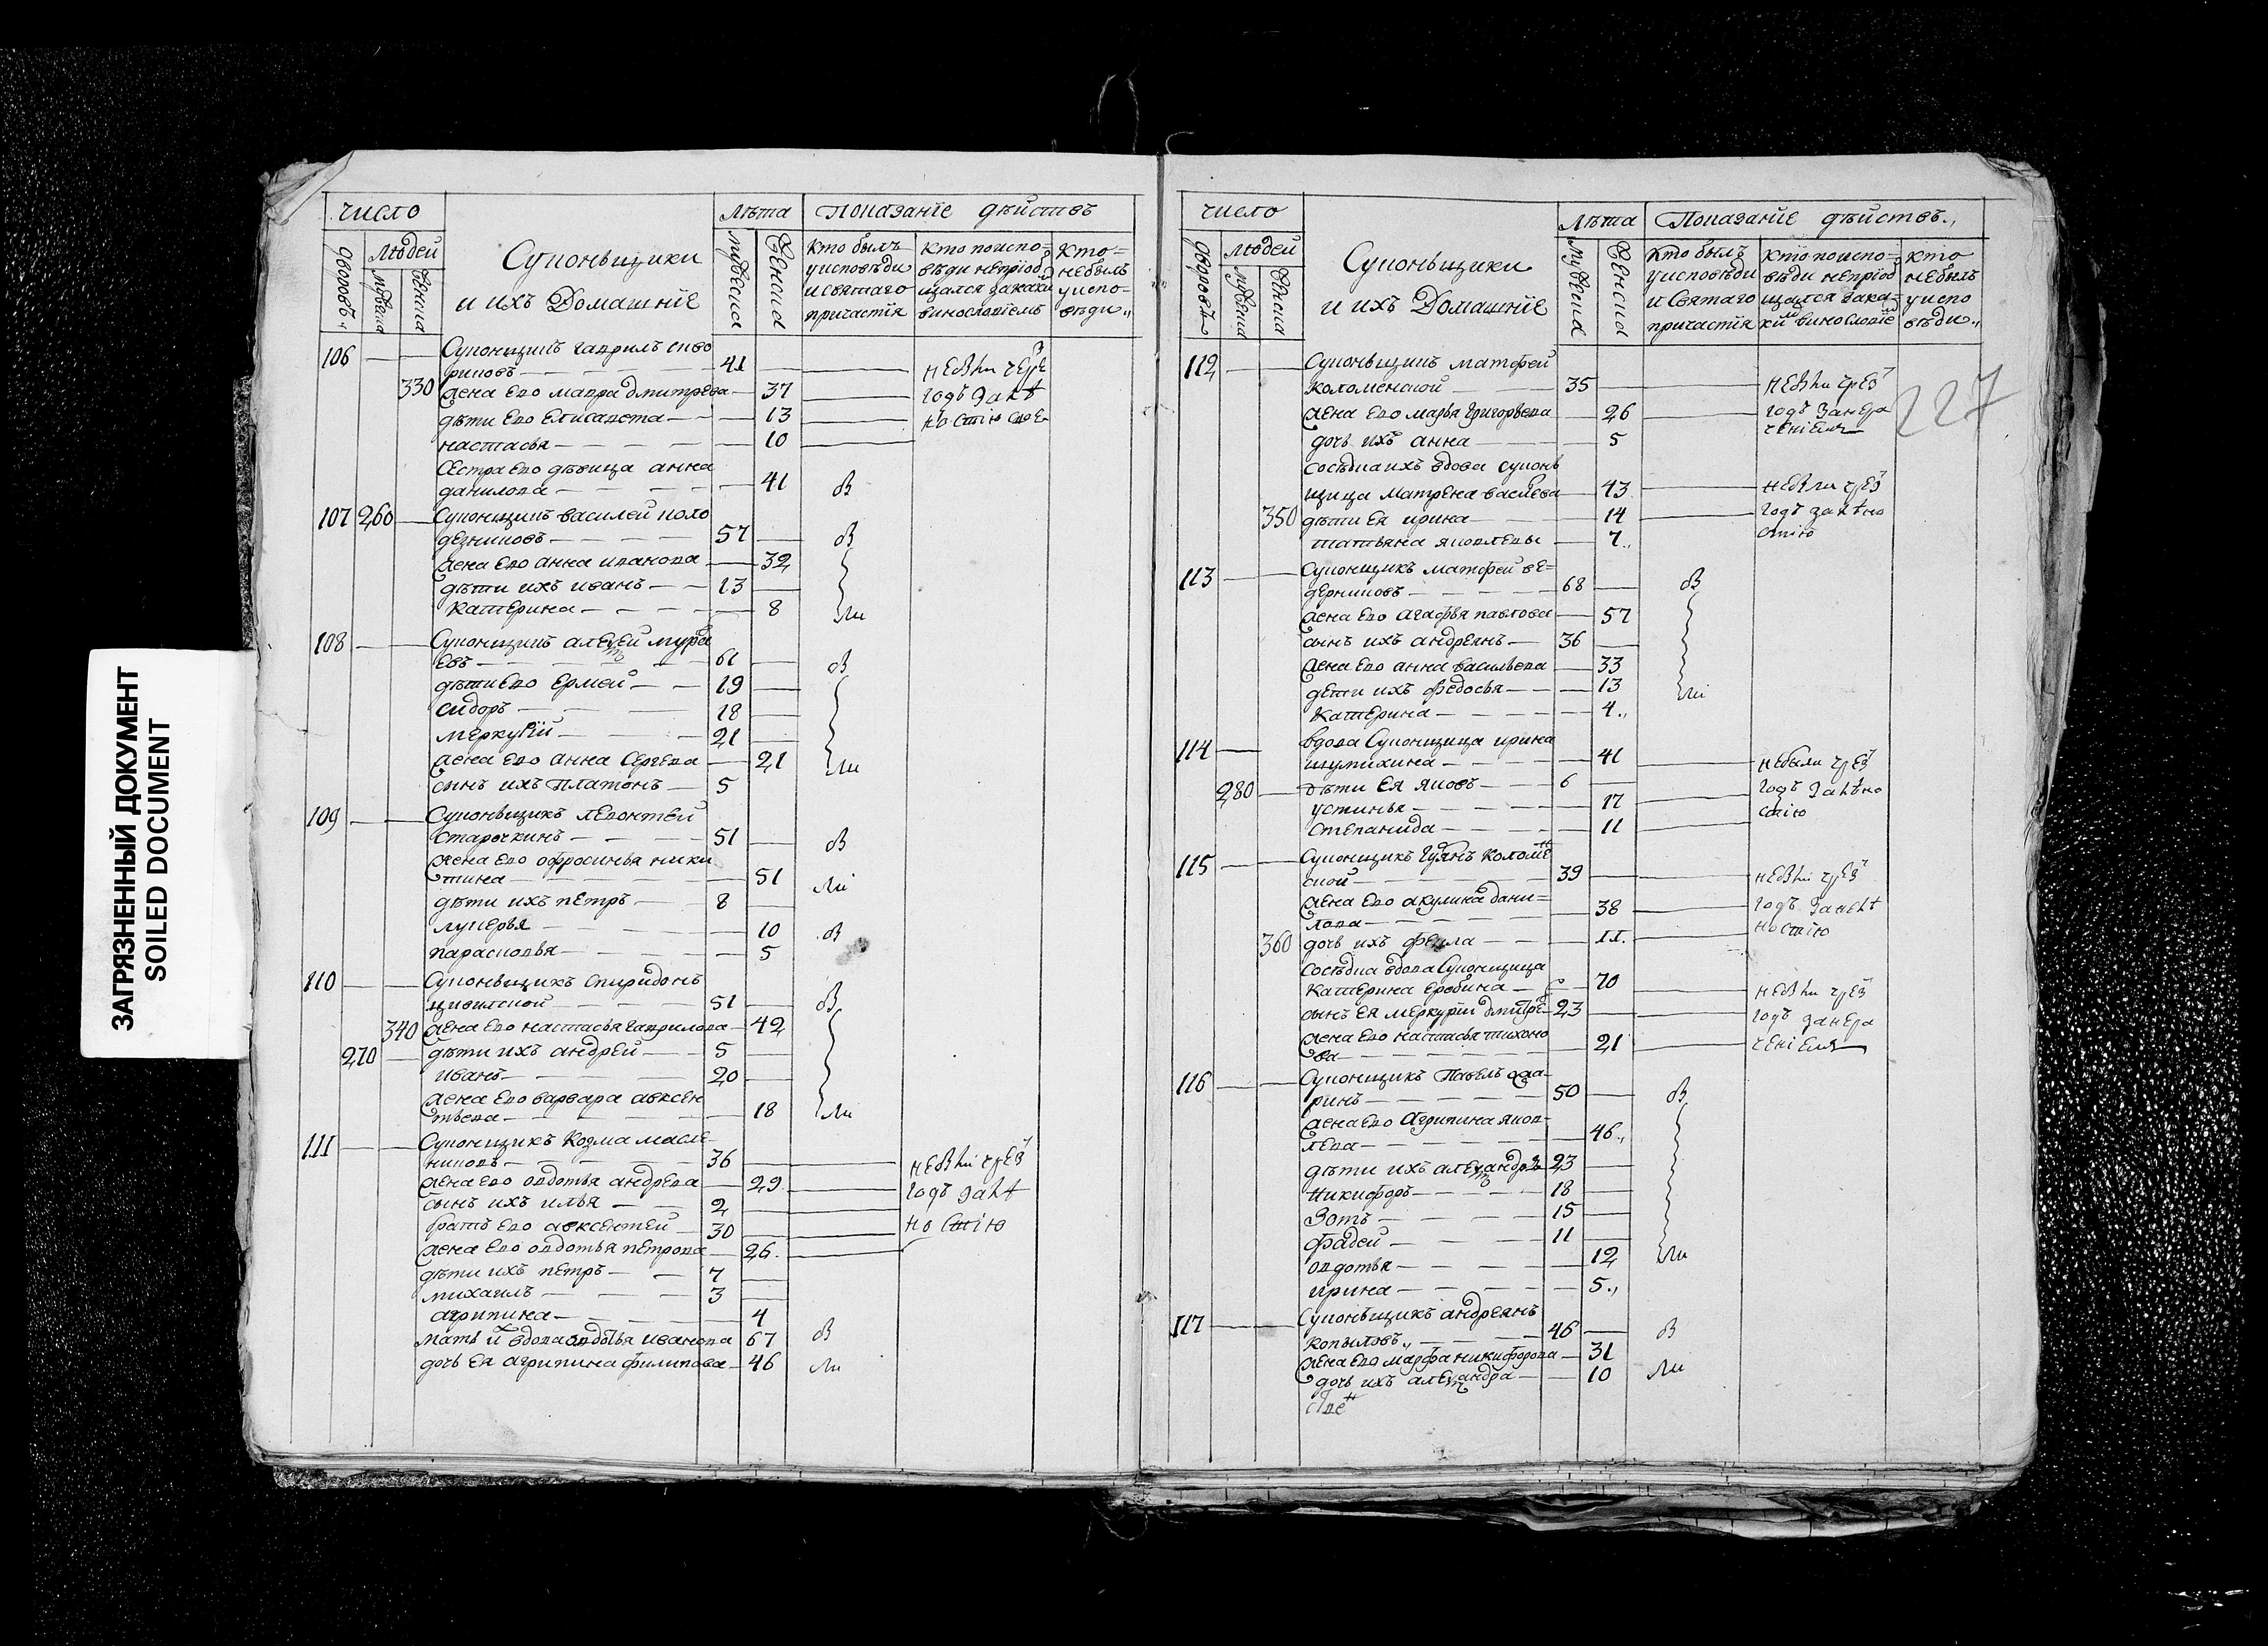 ЗАГРЯЗНЕННЫЙ ДОКУМЕНТ
SOILED DOCUMENT
число
Людей
Супонвщики
и ихъ Домашніе
Лѣта
Показаніе дѣйствъ
Дворовъ
мужеска
женска
мужеска
женска
Кто былъ
у исповѣди
и святаго
причастія
Кто по испо-
вѣди не пріоб
щался за каки
винословіемъ
Кто
не былъ
у испо-
вѣди
106
Супонщикъ Гаврилъ скво
рцовъ 41
не были чрез
330 жена ево мавра дмитрева 37
годъ за лѣ
дѣти ево Елисавета 13
ностію свое
настасья 10
Сестра ево дѣвица анна
данилова 41 въ
107 260 Супонщикъ василей поло
57 въ
жена ево анна иванова 32
дѣти ихъ иванъ 13
катерина 8 ли
108 Супонщикъ алексей
евъ 61 въ
дѣти ево Ермей 19
сидоръ 18
меркурій 21
жена ево анна Сергева 21 ли
сынъ ихъ Платонъ 5
109 Супонвщикъ леонтей
Старочкинъ 51 въ
жена ево офросинья ники
тина 51 ли
дѣти ихъ петръ 8
лукерья 10 въ
парасковья 5
110 Супонвщикъ Спиридонъ
51 въ
340 жена ево настасья гаврилова 42
270 дѣти ихъ андрей 5
иванъ 20
жена ево варвара авксен
тьева 18 ли
111 Супонщикъ Козма масле
никовъ 36
не были чрез
жена ево овдотья андрева 29
годъ за лѣ
сынъ ихъ илья 2
братъ ево авксентей 30
ностію
жена ево овдотья петрова 26
дѣти ихъ петръ 7
михаилъ 3
агрипина 4
мать и вдова овдотья иванова 67 въ
дочь ея агрипина филипова 46 ли
число
Людей
Супонвщики
и ихъ Домашніе
Лѣта
Показаніе дѣйствъ
Дворовъ
мужеска
женска
мужеска
женска
Кто былъ
у исповѣди
и Святаго
причастія
Кто по испо-
вѣди не пріоб
щался за ка-
ки винословіе
кто
не былъ
у испо
вѣди
227
112 Супонвщикъ матфей
коломенской 35
не были чрез
жена ево марья григорьева 26
годъ за нера
дочь ихъ анна 5
ченіемъ
сосѣдка ихъ вдова супонв
щица матрена васлева 43
не были чрез
350 дѣти ея ирина 14
годъ за лѣно
татьяна яковлевы 7
стію
113 Супонщикъ матфей ве-
дерниковъ 68 въ
жена ево агафья павлова 57
сынъ ихъ андреянъ 36
жена ево анна васильева 33
дети ихъ федосья 13 ли
Катерина 4
114 вдова Супонщица ирина
шумихина 41
не были чрез
280 дѣти ея яковъ 6
годъ за лѣно
устинья 17
стію
степанида 11
115 Супонщикъ Гурянъ коломе
ской 39
не были чрез
жена ево акулина дани-
лова 38
годъ за не лѣ
360 дочь ихъ фекла 11
ностію
сосѣдка вдова Супонщица
катерина еробина 70
не были чрез
сынъ ея меркурій дмитре 23
годъ за нера
жена ево настасья тихоно
ва 21
ченіемъ
116 Супонщикъ Павелъ
ринъ 50 въ
жена ево Агрипина яков-
лева 46
дѣти ихъ александръ 23
никифоръ 18
Зотъ 15
фадей 11
овдотья 12 ли
ирина 5
117 Супонвщикъ андреянъ
копыловъ 46 въ
жена ево марфа никифорова 31
дочь ихъ александра 10 ли